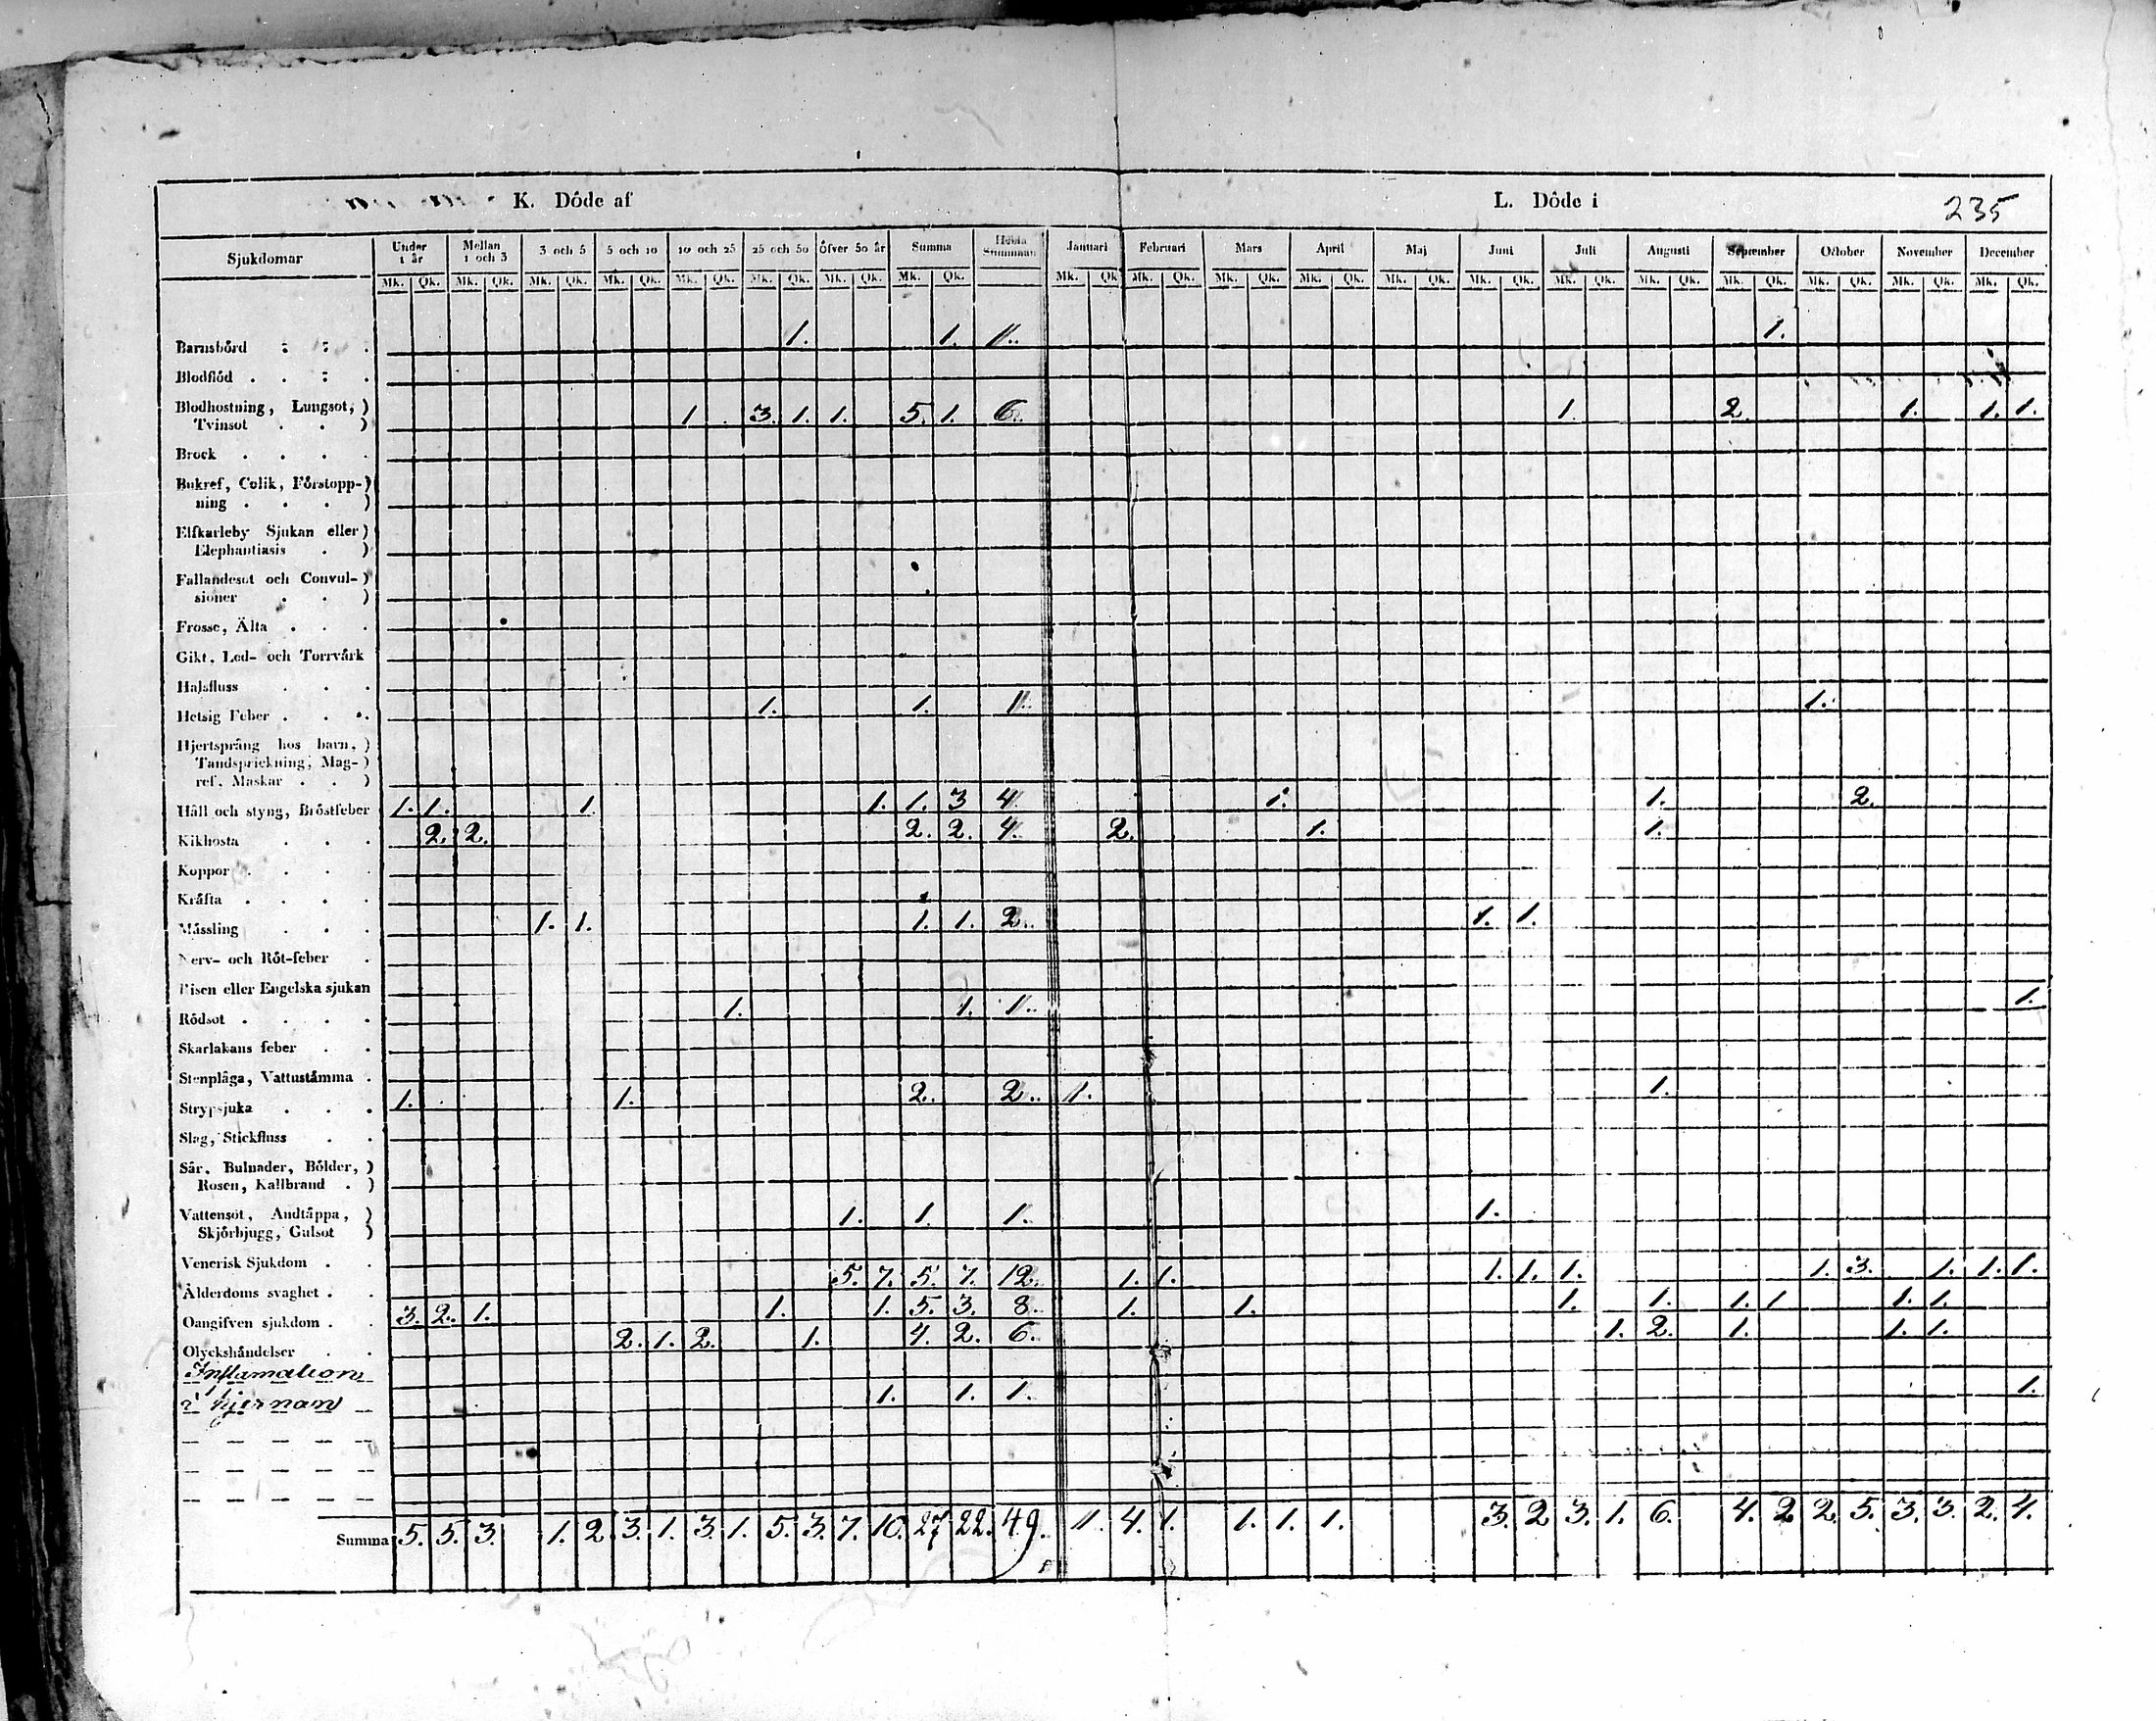 K. Döde af L. Döde i 235
Sjukdomar Under 1 år Mellan 1 och 3 3 och 5 5 och 10 10 och 25 25 och 50 Öfver 50 år Summa Hela Summan Januari Februari Mars April Maj Juni Juli Augusti September October November December
Mk. Qk. Mk. Qk. Mk. Qk. Mk. Qk. Mk. Qk. Mk. Qk. Mk. Qk. Mk. Qk. Mk. Qk. Mk. Qk. Mk. Qk. Mk. Qk. Mk. Qk. Mk. Qk. Mk. Qk. Mk. Qk. Mk. Qk. Mk. Qk. Mk. Qk. Mk. Qk.
Barnsbörd 1. 1. 1. 1.
Blodflöd
Blodhostning, Lungsot,)
Tvinsot ) 1 3. 1. 1. 5. 1. 6. 1. 2. 1. 1. 1.
Brock
Bukref, Colik, Förstopp-)
ning )
Elfkarleby Sjukan eller)
Elephantiasis )
Fallandesot och Convul-)
sioner )
Frosse, Älta
Gikt, Led- och Torrvårk
Halsfluss
Hetsig Feber 1. 1. 1. 1.
Hjertsprång hos barn,)
Tandsprickning, Mag-)
ref, Maskar )
Håll och styng, Bröstfeber 1. 1. 1. 1. 1. 3 4 1. 1. 2.
Kikhosta 2. 2. 2. 2. 4. 2. 1. 1.
Koppor
Kräfta
Mässling 1. 1. 1. 1. 2. 1. 1.
Nerv- och Röt-feber
Risen eller Engelska sjukan
Rödsot 1. 1. 1. 1.
Skarlakans feber
Stenplåga, Vattustämma
Strypsjuka 1. 1. 2. 2. 1. 1.
Slag, Stickfluss
Sår, Bulnader, Bölder,)
Rosen, Kallbrand )
Vattensot, Andtäppa, )
Skjörbjugg, Gulsot ) 1. 1. 1. 1.
Venerisk Sjukdom
Ålderdoms svaghet 5. 7. 5. 7. 12. 1. 1. 1. 1. 1. 1. 3. 1. 1. 1.
Oangifven sjukdom 3. 2. 1. 1. 1. 5. 3. 8. 1. 1. 1. 1. 1. 1 1. 1.
Olyckshändelser 2. 1. 2. 1. 4. 2. 6. 1. 2. 1. 1. 1.
Inflamation
i hjernan 1. 1. 1. 1.
Summa 5. 5. 3. 1. 2. 3. 1. 3. 1. 5. 3. 7. 10. 27 22. 49. 1. 4. 1. 1. 1. 1. 3. 2 3. 1. 6. 4. 2 2. 5. 3. 3. 2. 4.